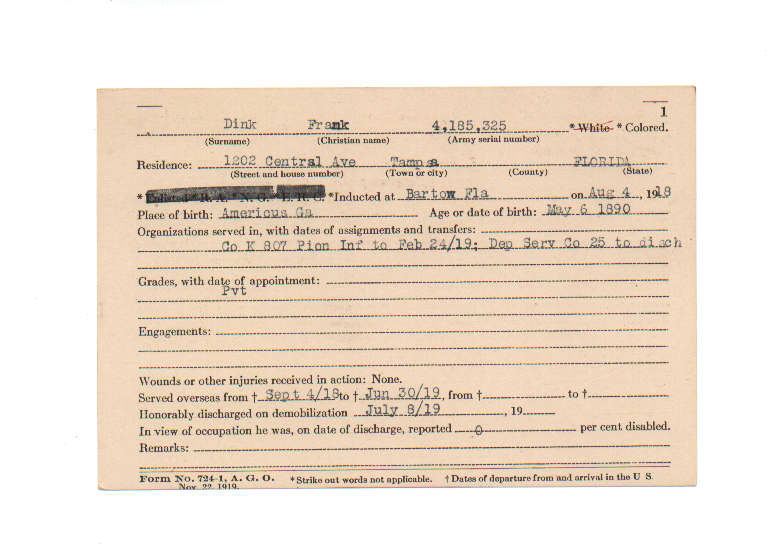 1
Dink Frank 4,185,325 * White * Colored.
(Surname) (Christian name) (Army serial number)
Residence: 1202 Central Ave Tampa FLORIDA
(Street and house number) (Town or city) (County) (State)
* Enlisted * R. A. * N. G. * E. R. C. * Inducted at Bartow Fla on Aug 4, 1918
Place of birth: Americus Ga Age or date of birth: May 6 1890
Organizations served in, with dates of assignments and transfers:
Co K 807 Pion Inf to Feb 24/19; Dep Serv Co 25 to disch
Grades, with date of appointment:
Pvt
Engagements:
Wounds or other injuries received in action: None.
Served overseas from † Sept 4/18 to † Jun 30/19, from † to †
Honorably discharged on demobilization July 8/19, 19
In view of occupation he was, on date of discharge, reported 0 per cent disabled.
Remarks:
Form No. 724-1, A. G. O. * Strike out words not applicable. † Dates of departure from and arrival in the U S.
Nov. 22, 1919.